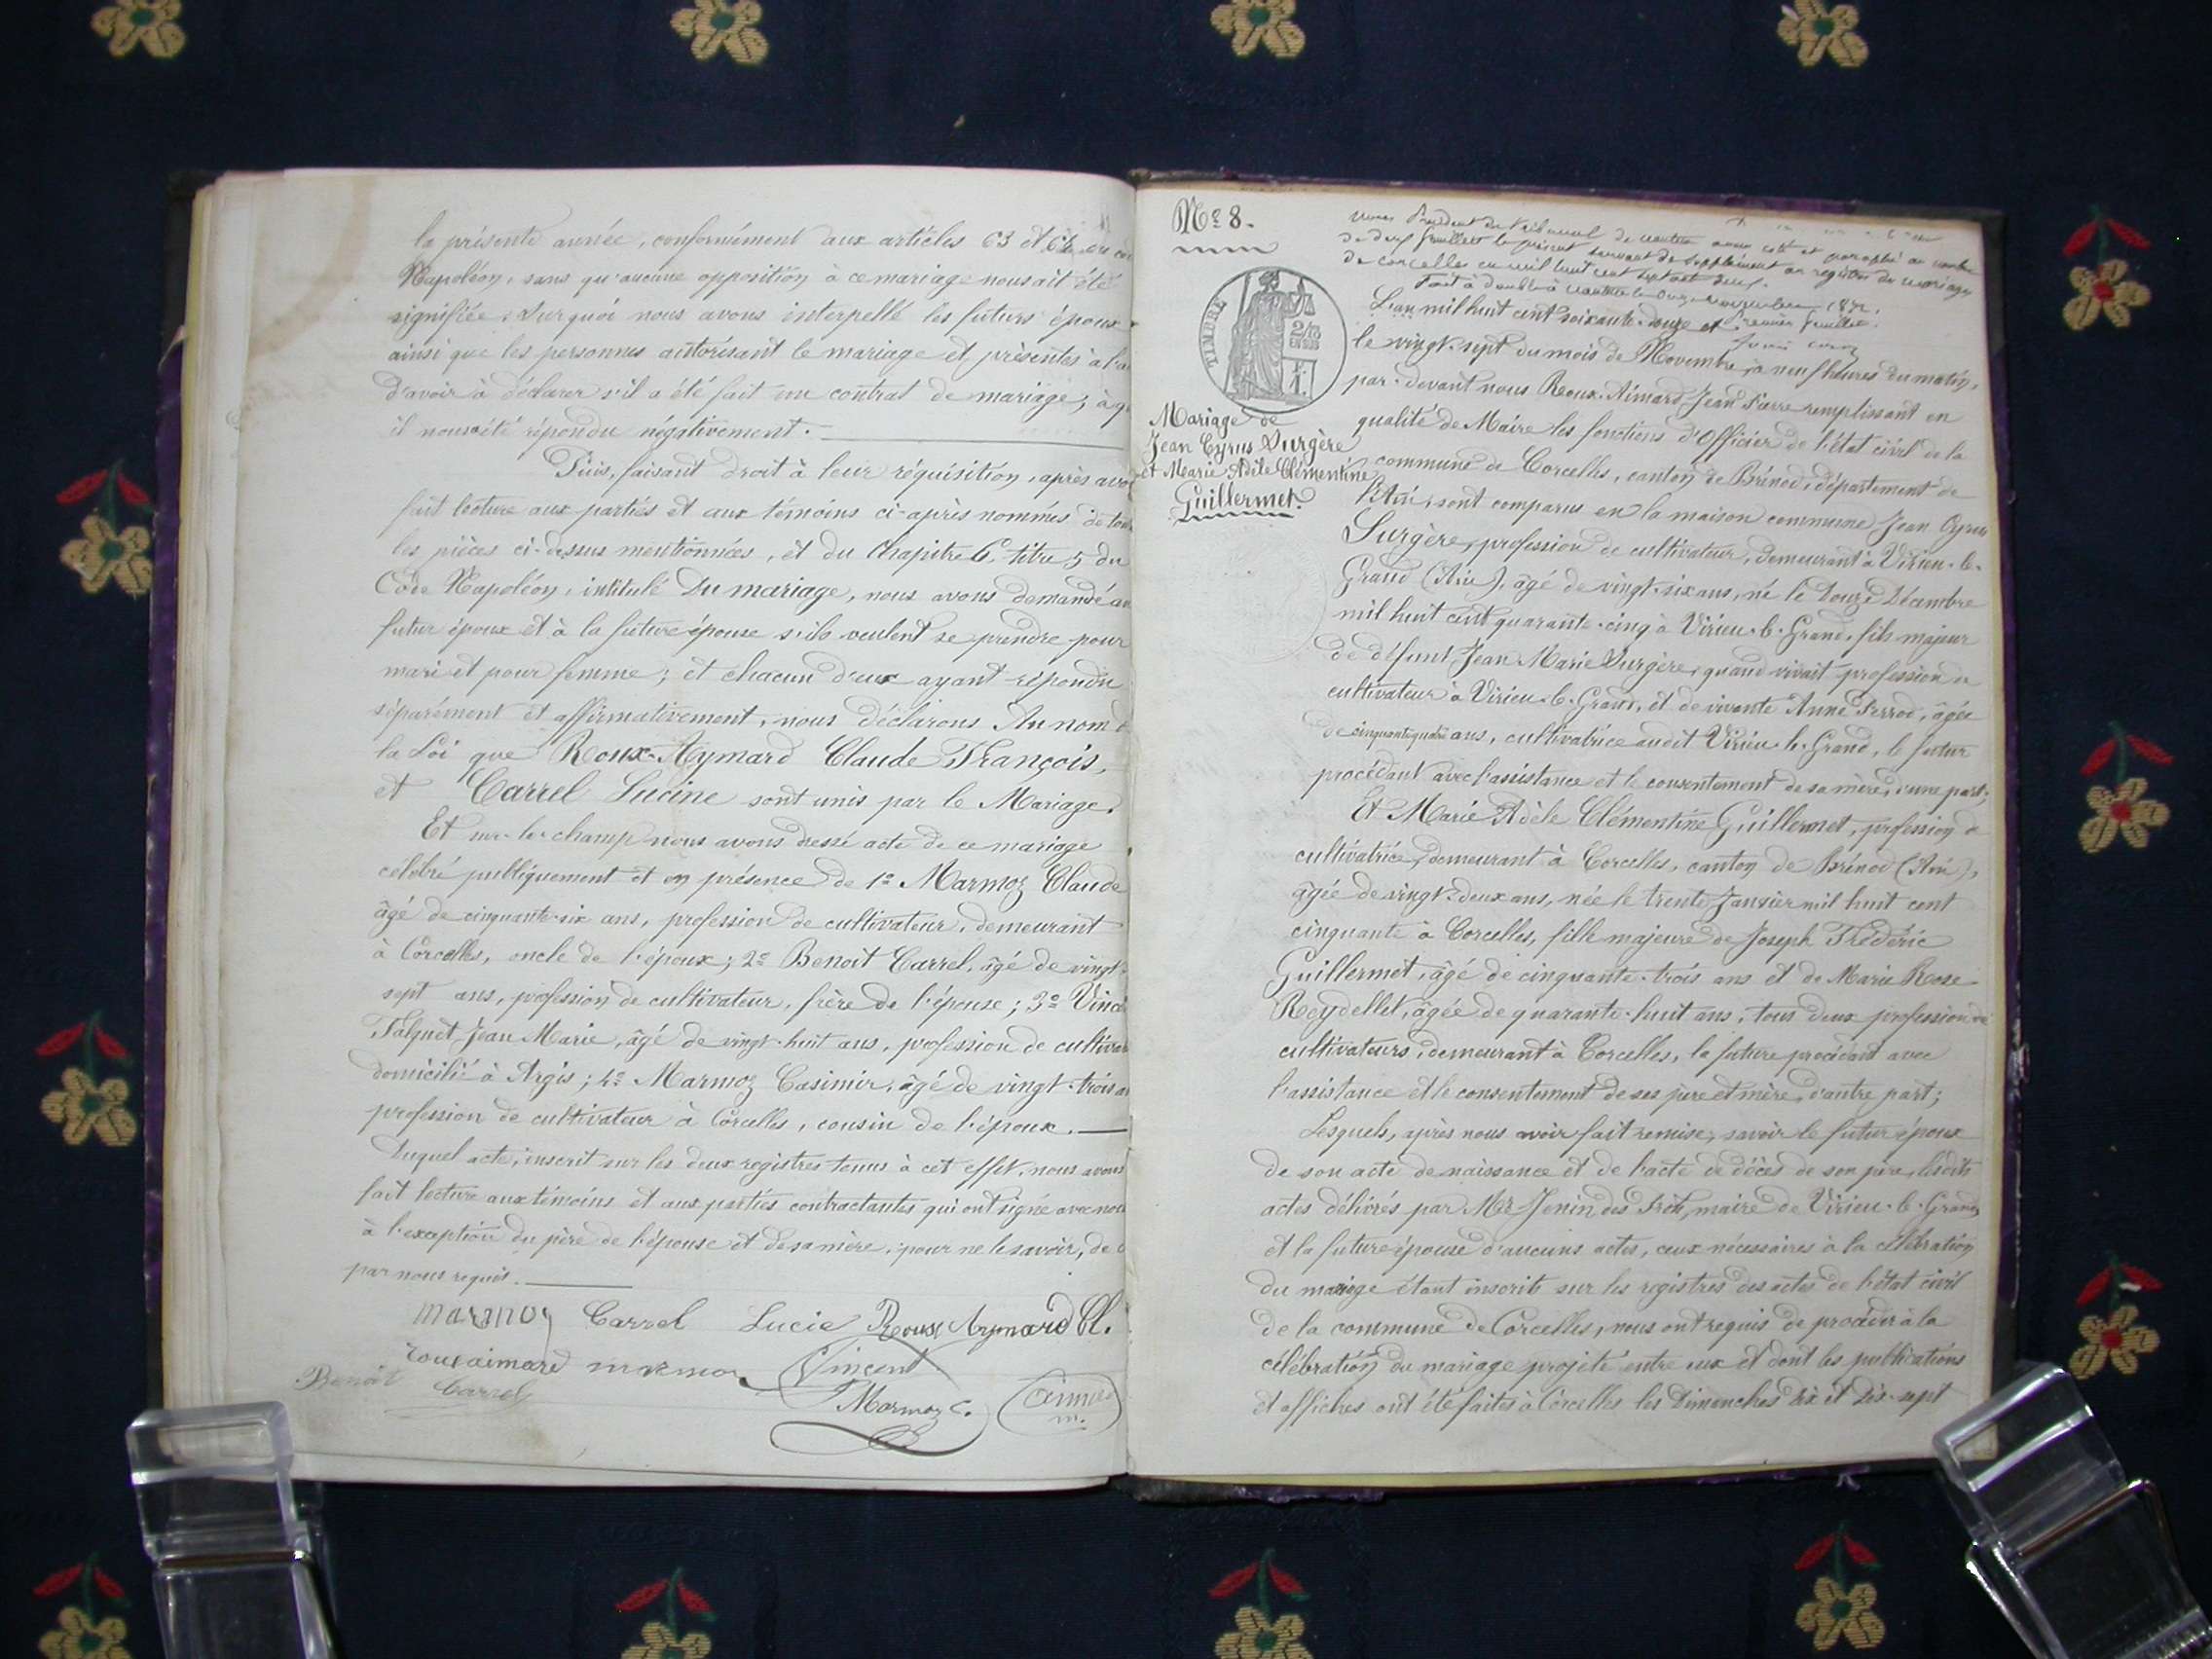 la présente année, conformément aux articles 63 et 64 du
Napoléon, sans qu'aucune opposition à ce mariage nous ait été
signifiée. Sur quoi nous avons interpellé les futurs époux
ainsi que les personnes autorisant le mariage et présentes à
d'avoir à déclarer s'il a été fait un contrat de mariage; à
il nous a été répondu négativement.
Puis, faisant droit à leur réquisition, après
fait lecture aux parties et aux témoins ci-après nommés de
les pièces ci-dessus mentionnées, et du Chapitre 6, titre 5 du
Code Napoléon, intitulé Du mariage, nous avons demandé
futur époux et à la future épouse s'ils veulent se prendre pour
mari et pour femme; et chacun d'eux ayant répondu
séparément et affirmativement, nous déclarons Au nom
la Loi que Roux-Aymard Claude François,
et Carrel Lucine sont unis par le Mariage.
Et sur-le-champ nous avons dressé acte de ce mariage
célébré publiquement et en présence de 1º Marmoz Claude
âgé de cinquante-six ans, profession de cultivateur, demeurant
à Corcelles, oncle de l'époux; 2º Benoit Carrel, âgé de vingt-
sept ans, profession de cultivateur, frère de l'épouse; 3º
Jean Marie, âgé de vingt-huit ans, profession de
domicilié à Argis; 4º Marmoz Casimir, âgé de vingt-trois
profession de cultivateur à Corcelles, cousin de l'époux.
Duquel acte, inscrit sur les deux registres tenus à cet effet, nous avons
fait lecture aux témoins et aux parties contractantes qui ont signé avec
à l'exception du père de l'épouse et de sa mère, pour ne le savoir, de
par nous requis.
Marmoz Carrel Lucie Roux Aymard Cl.
rouxaimard marmoz Vincent
Benoit Carrel Marmoz C.
Nº 8.
TIMBRE
Mariage de
Jean Cyrus Surgère
et Marie Adèle Clémentine
Guillermet.
Président du Tribunal de coté et paraphé au
de deux feuillets le présent servant de supplément au registre de mariages
de Corcelles en mil huit cent soixante douze.
Fait à double à Nantua le onze novembre 1872.
L'an mil huit cent soixante-douze et premier feuillet.
le vingt-sept du mois de Novembre, à neuf heures du matin,
par-devant nous Roux-Aimard Jean Pierre remplissant en
qualité de Maire les fonctions d'Officier de l'état civil de la
commune de Corcelles, canton de Brénod, département de
l'Ain, sont comparus en la maison commune Jean Cyrus
Surgère, profession de cultivateur, demeurant à Virieu-le-
Grand (Ain), âgé de vingt-six ans, né le Douze Décembre
mil huit cent quarante-cinq à Virieu-le-Grand, fils majeur
de défunt Jean Marie Surgère, quand vivait profession de
cultivateur à Virieu-le-Grand, et de vivante Anne Perrod, âgée
de cinquante quatre ans, cultivatrice audit Virieu-le-Grand, le futur
procédant avec l'assistance et le consentement de sa mère, d'une part;
Et Marie Adèle Clémentine Guillermet, profession de
cultivatrice, demeurant à Corcelles, canton de Brénod (Ain),
âgée de vingt-deux ans, née le trente Janvier mil huit cent
cinquante à Corcelles, fille majeure de Joseph Frédéric
Guillermet, âgé de cinquante-trois ans et de Marie Rose
Reydellet, âgée de quarante-huit ans, tous deux profession de
cultivateurs, demeurant à Corcelles, la future procédant avec
l'assistance et le consentement de ses père et mère, d'autre part;
Lesquels, après nous avoir fait remise, savoir le futur époux
de son acte de naissance et de l'acte de décès de son père, lesdits
actes délivrés par Mr Jenin des Prôts, maire de Virieu-le-Grand
et la future épouse d'aucuns actes, ceux nécessaires à la célébration
du mariage étant inscrits sur les registres des actes de l'état civil
de la commune de Corcelles, nous ont requis de procéder à la
célébration du mariage projeté entre eux et dont les publications
et affiches ont été faites à Corcelles les Dimanches dix et dix-sept